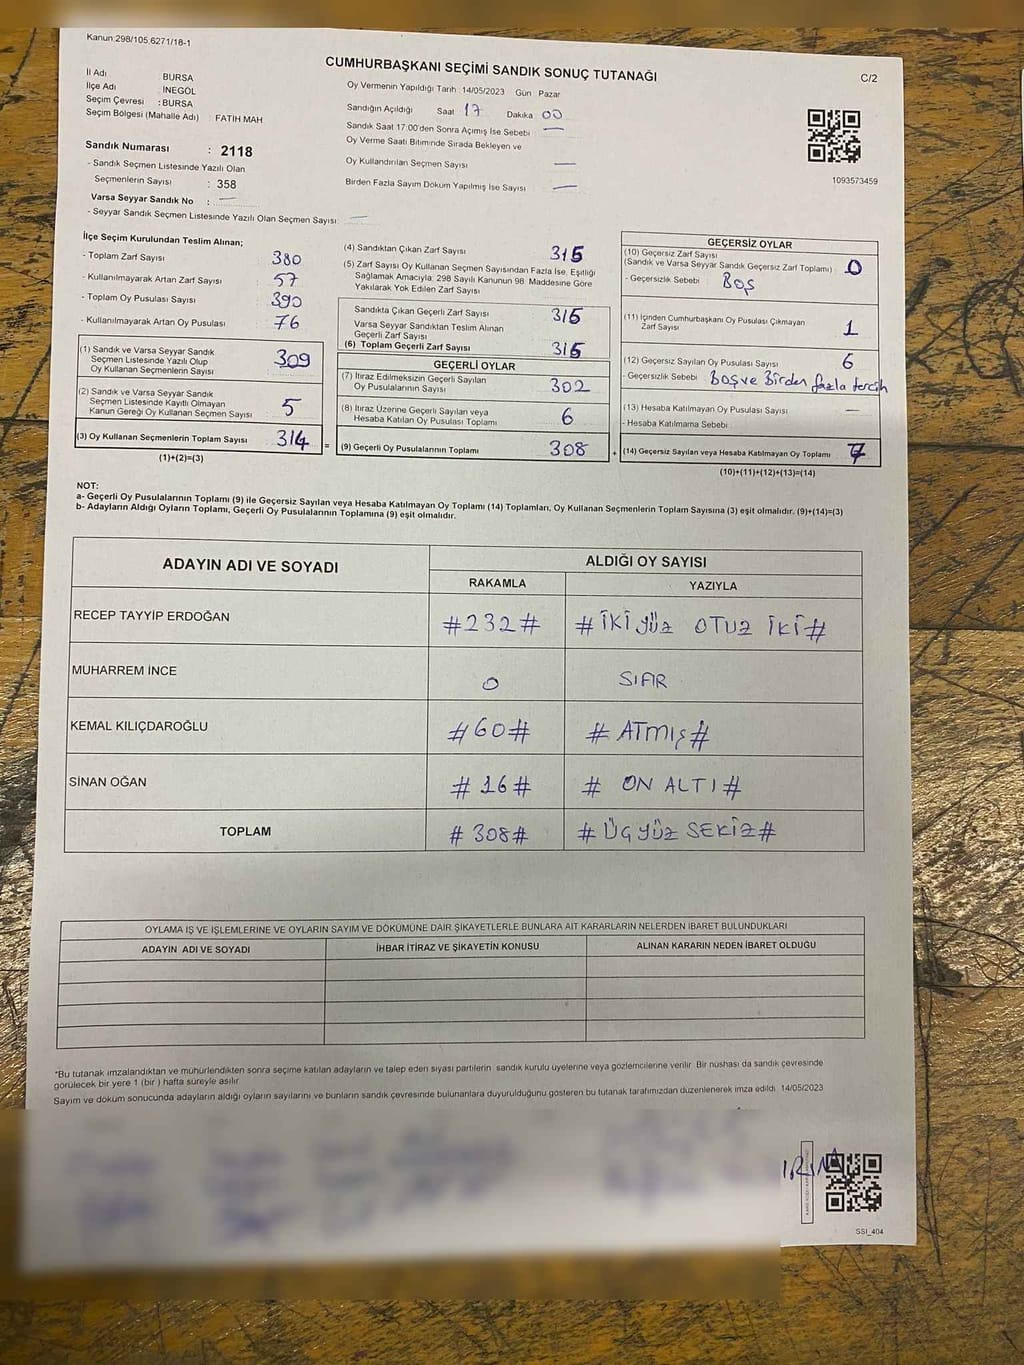 Kanun:298/105,6271/18-1
CUMHURBAŞKANI SEÇİMİ SANDIK SONUÇ TUTANAĞI
C/2
İl Adı BURSA
İlçe Adı İNEGÖL
Seçim Çevresi : BURSA
Seçim Bölgesi (Mahalle Adı) FATİH MAH
Oy Vermenin Yapıldığı Tarih 14/05/2023 Gün Pazar
Sandığın Açıldığı Saat 17 Dakika 00
Sandık Saat 17:00'den Sonra Açımış İse Sebebi —
Oy Verme Saati Bitiminde Sırada Bekleyen ve
Oy Kullandırılan Seçmen Sayısı —
Birden Fazla Sayım Döküm Yapılmış İse Sayısı —
1093573459
Sandık Numarası : 2118
- Sandık Seçmen Listesinde Yazılı Olan
Seçmenlerin Sayısı : 358
Varsa Seyyar Sandık No : —
- Seyyar Sandık Seçmen Listesinde Yazılı Olan Seçmen Sayısı —
İlçe Seçim Kurulundan Teslim Alınan;
- Toplam Zarf Sayısı 380
- Kullanılmayarak Artan Zarf Sayısı 57
- Toplam Oy Pusulası Sayısı 390
- Kullanılmayarak Artan Oy Pusulası 76
(1) Sandık ve Varsa Seyyar Sandık
Seçmen Listesinde Yazılı Olup
Oy Kullanan Seçmenlerin Sayısı 309
(2) Sandık ve Varsa Seyyar Sandık
Seçmen Listesinde Kayıtlı Olmayan
Kanun Gereği Oy Kullanan Seçmen Sayısı 5
(3) Oy Kullanan Seçmenlerin Toplam Sayısı 314 =
(1)+(2)=(3)
(4) Sandıktan Çıkan Zarf Sayısı 315
(5) Zarf Sayısı Oy Kullanan Seçmen Sayısından Fazla İse, Eşitliği
Sağlamak Amacıyla; 298 Sayılı Kanunun 98. Maddesine Göre
Yakılarak Yok Edilen Zarf Sayısı
Sandıkta Çıkan Geçerli Zarf Sayısı 315
Varsa Seyyar Sandıktan Teslim Alınan
Geçerli Zarf Sayısı
(6) Toplam Geçerli Zarf Sayısı 315
GEÇERLİ OYLAR
(7) İtiraz Edilmeksizin Geçerli Sayılan
Oy Pusulalarının Sayısı 302
(8) İtiraz Üzerine Geçerli Sayılan veya
Hesaba Katılan Oy Pusulası Toplamı 6
(9) Geçerli Oy Pusulalarının Toplamı 308 +
GEÇERSİZ OYLAR
(10) Geçersiz Zarf Sayısı
(Sandık ve Varsa Seyyar Sandık Geçersiz Zarf Toplamı) 0
- Geçersizlik Sebebi Boş
(11) İçinden Cumhurbaşkanı Oy Pusulası Çıkmayan
Zarf Sayısı 1
(12) Geçersiz Sayılan Oy Pusulası Sayısı 6
- Geçersizlik Sebebi Boş ve Birden fazla tercih
(13) Hesaba Katılmayan Oy Pusulası Sayısı —
- Hesaba Katılmama Sebebi
(14) Geçersiz Sayılan veya Hesaba Katılmayan Oy Toplamı 7
(10)+(11)+(12)+(13)=(14)
NOT:
a- Geçerli Oy Pusulalarının Toplamı (9) ile Geçersiz Sayılan veya Hesaba Katılmayan Oy Toplamı (14) Toplamları, Oy Kullanan Seçmenlerin Toplam Sayısına (3) eşit olmalıdır. (9)+(14)=(3)
b- Adayların Aldığı Oyların Toplamı, Geçerli Oy Pusulalarının Toplamına (9) eşit olmalıdır.
ADAYIN ADI VE SOYADI
ALDIĞI OY SAYISI
RAKAMLA YAZIYLA
RECEP TAYYİP ERDOĞAN #232# #İKİ YÜZ OTUZ İKİ#
MUHARREM İNCE 0 SIFIR
KEMAL KILIÇDAROĞLU #60# #ATMIŞ#
SİNAN OĞAN #16# #ON ALTI#
TOPLAM #308# #ÜÇ YÜZ SEKİZ#
OYLAMA İŞ VE İŞLEMLERİNE VE OYLARIN SAYIM VE DÖKÜMÜNE DAİR ŞİKAYETLERLE BUNLARA AİT KARARLARIN NELERDEN İBARET BULUNDUKLARI
ADAYIN ADI VE SOYADI İHBAR İTİRAZ VE ŞİKAYETİN KONUSU ALINAN KARARIN NEDEN İBARET OLDUĞU
*Bu tutanak imzalandıktan ve mühürlendikten sonra seçime katılan adayların ve talep eden siyasi partilerin sandık kurulu üyelerine veya gözlemcilerine verilir. Bir nüshası da sandık çevresinde
görülecek bir yere 1 (bir ) hafta süreyle asılır
Sayım ve döküm sonucunda adayların aldığı oyların sayılarını ve bunların sandık çevresinde bulunanlara duyurulduğunu gösteren bu tutanak tarafımızdan düzenlenerek imza edildi. 14/05/2023
SSI_404